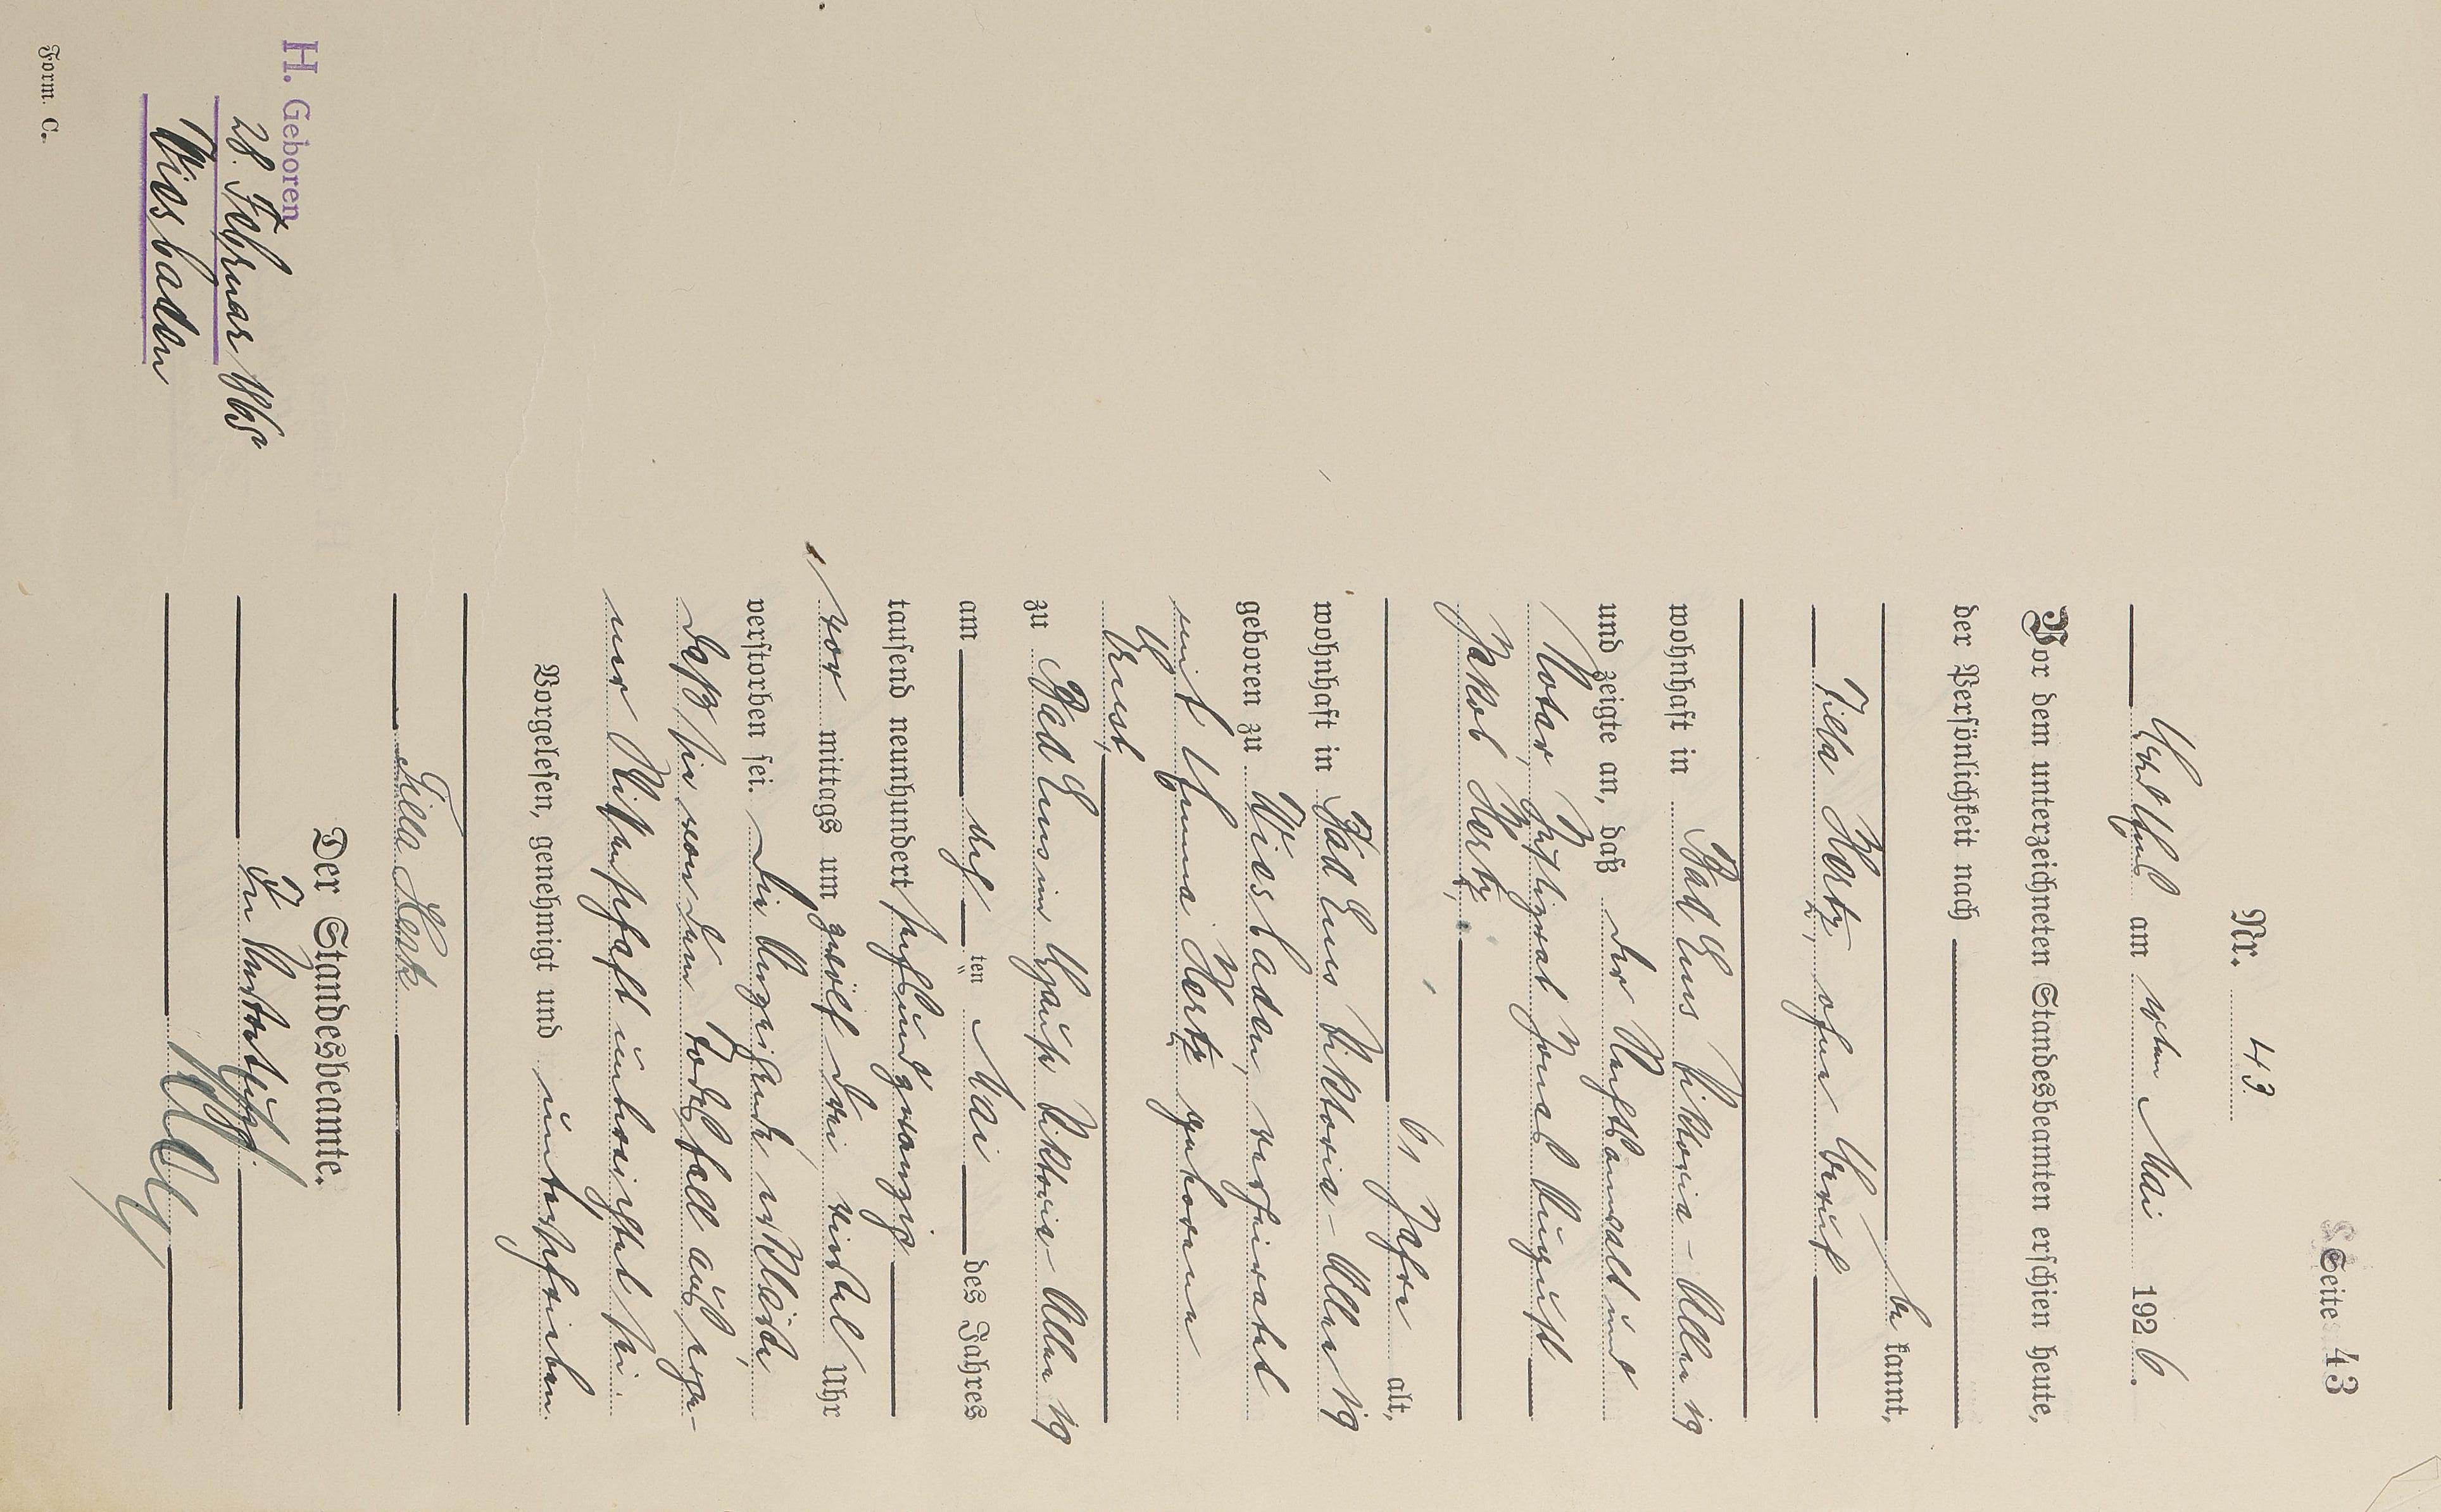 Seite 43
Nr. 43
Bad Ems am 8ten Mai 1926.
Vor dem unterzeichneten Standesbeamten erschien heute,
der Persönlichkeit nach
bekannt,
Tilla Hertz, ohne Beruf
wohnhaft in Bad Ems Viktoria-Allee 19
und zeigte an, daß der Rechtsanwalt und
Notar, Justizrat Jonas August
Jakob Hertz,
61 Jahre alt,
wohnhaft in Bad Ems Viktoria-Allee 19
geboren zu Wiesbaden, verheiratet
mit Emma Hertz geborene
Ernst,
zu Bad Ems im Hause Viktoria-Allee 19
am ten Mai des Jahres
tausend neunhundert sechsundzwanzig
vor mittags um zwölf drei viertel Uhr
verstorben sei. Die Anzeigende erklärte,
daß sie von dem Todesfall aus eige-
ner Wissenschaft unterrichtet sei.
Vorgelesen, genehmigt und unterschrieben.
Tilla Hertz
Der Standesbeamte.
In Vertretung.
H. Geboren
28. Februar 1865
Wiesbaden
Form. C.